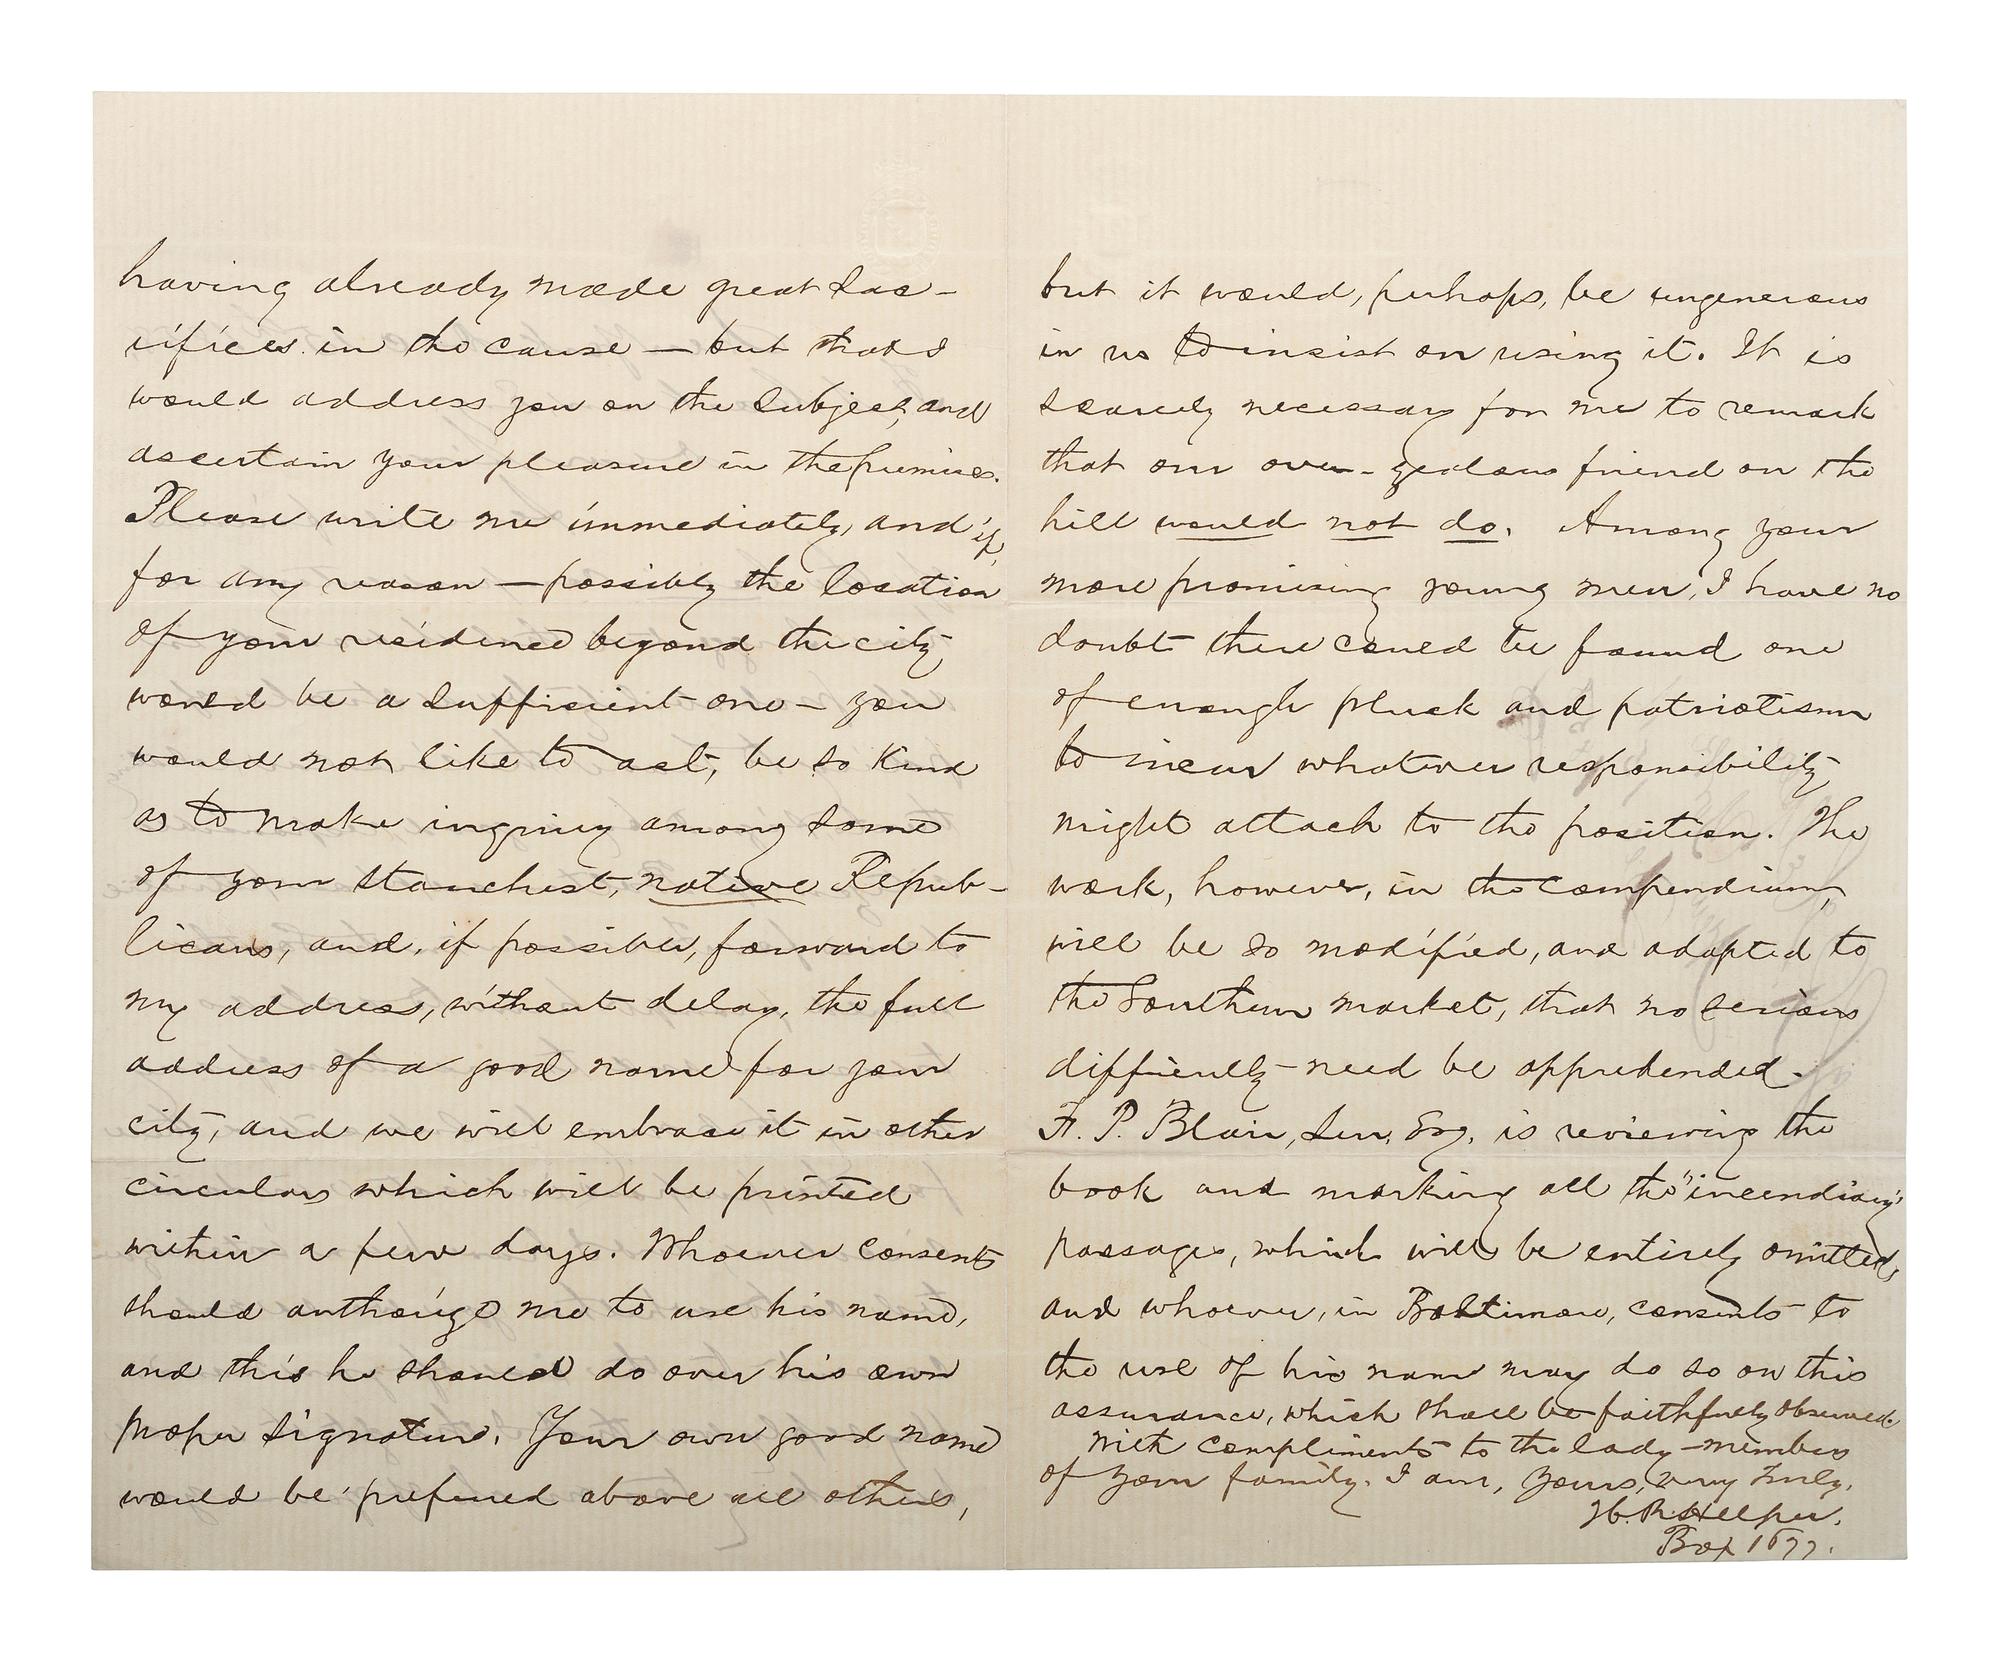 having already made great sac-
rifices in the cause — but that I
would address you on the subject, and
ascertain your pleasure in the premises.
Please write me immediately, and if,
for any reason — possibly the location
of your residence beyond the city
would be a sufficient one — you
would not like to act, be so kind
as to make inquiry among some
of your stanchest, native Repub-
licans, and, if possible, forward to
my address, without delay, the full
address of a good name for your
city, and we will embrace it in other
circulars which will be printed
within a few days. Whoever consents
should authorize me to use his name,
and this he should do over his own
proper signature. Your own good name
would be preferred above all others,
but it would, perhaps, be ungenerous
in us to insist on using it. It is
scarcely necessary for me to remark
that our over-zealous friend on the
hill would not do. Among your
more promising young men, I have no
doubt there could be found one
of enough pluck and patriotism
to incur whatever responsibility
might attach to the position. The
work, however, in the compendium,
will be so modified, and adapted to
the Southern market, that no serious
difficulty need be apprehended.
F. P. Blair, Sen. Esq. is reviewing the
book and marking all the "incendiary"
passages, which will be entirely omitted,
and whoever, in Baltimore, consents to
the use of his name may do so on this
assurance, which shall be faithfully observed.
With compliments to the lady-members
of your family, I am, Yours, very truly,
H. R. Helper.
Box 1677.